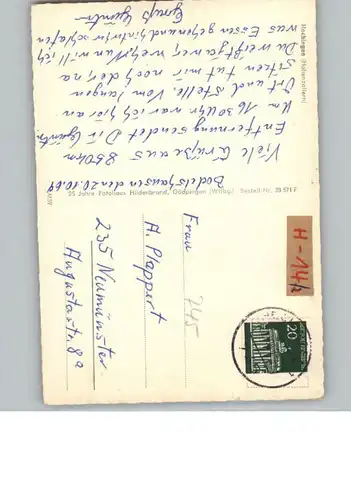 Hechingen (Hohenzollern)
Bodelshausen den 20.10.69
Viele Grüße aus 850 km
Entfernung sendet Dir Günter.
Um 16.30 Uhr war ich hier an
Ort und Stelle. Vom langen
Sitzen tut mir noch der, na
Du weißt ja wer, weh. Nun will ich
was Essen gehen und hinterher schlafen
Gruß Günter
25 Jahre Fotohaus Hildenbrand, Göppingen (Württbg.) Bestell-Nr. 20 571 F
Frau
245
A. Plappert
235 Neumünster
Augustastr. 8a
H-14/2
20